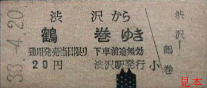 33.4.20
渋沢から
鶴巻ゆき
通用発売当日限り 下車前途無効
20円 渋沢駅発行 小
渋沢
鶴巻
見本